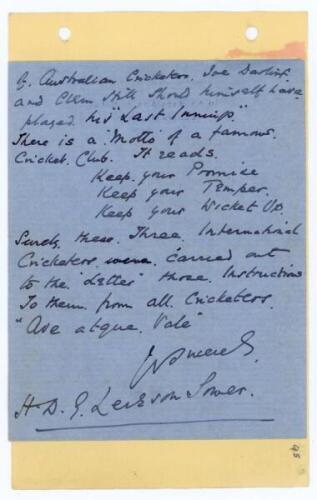 of Australian Cricketers. Joe Darling.
and Clem Hill should himself have
played his "Last Innings".
There is a "Motto" of a famous.
Cricket. Club. It reads.
Keep your Promise
Keep your Temper.
Keep your Wicket Up
Surely these. Three. International
Cricketers were. carried out
to the "Letter" three. Instructions
To them. from all. Cricketers.
"Ave atque. Vale"
H. D. G. Leveson Gower.
95